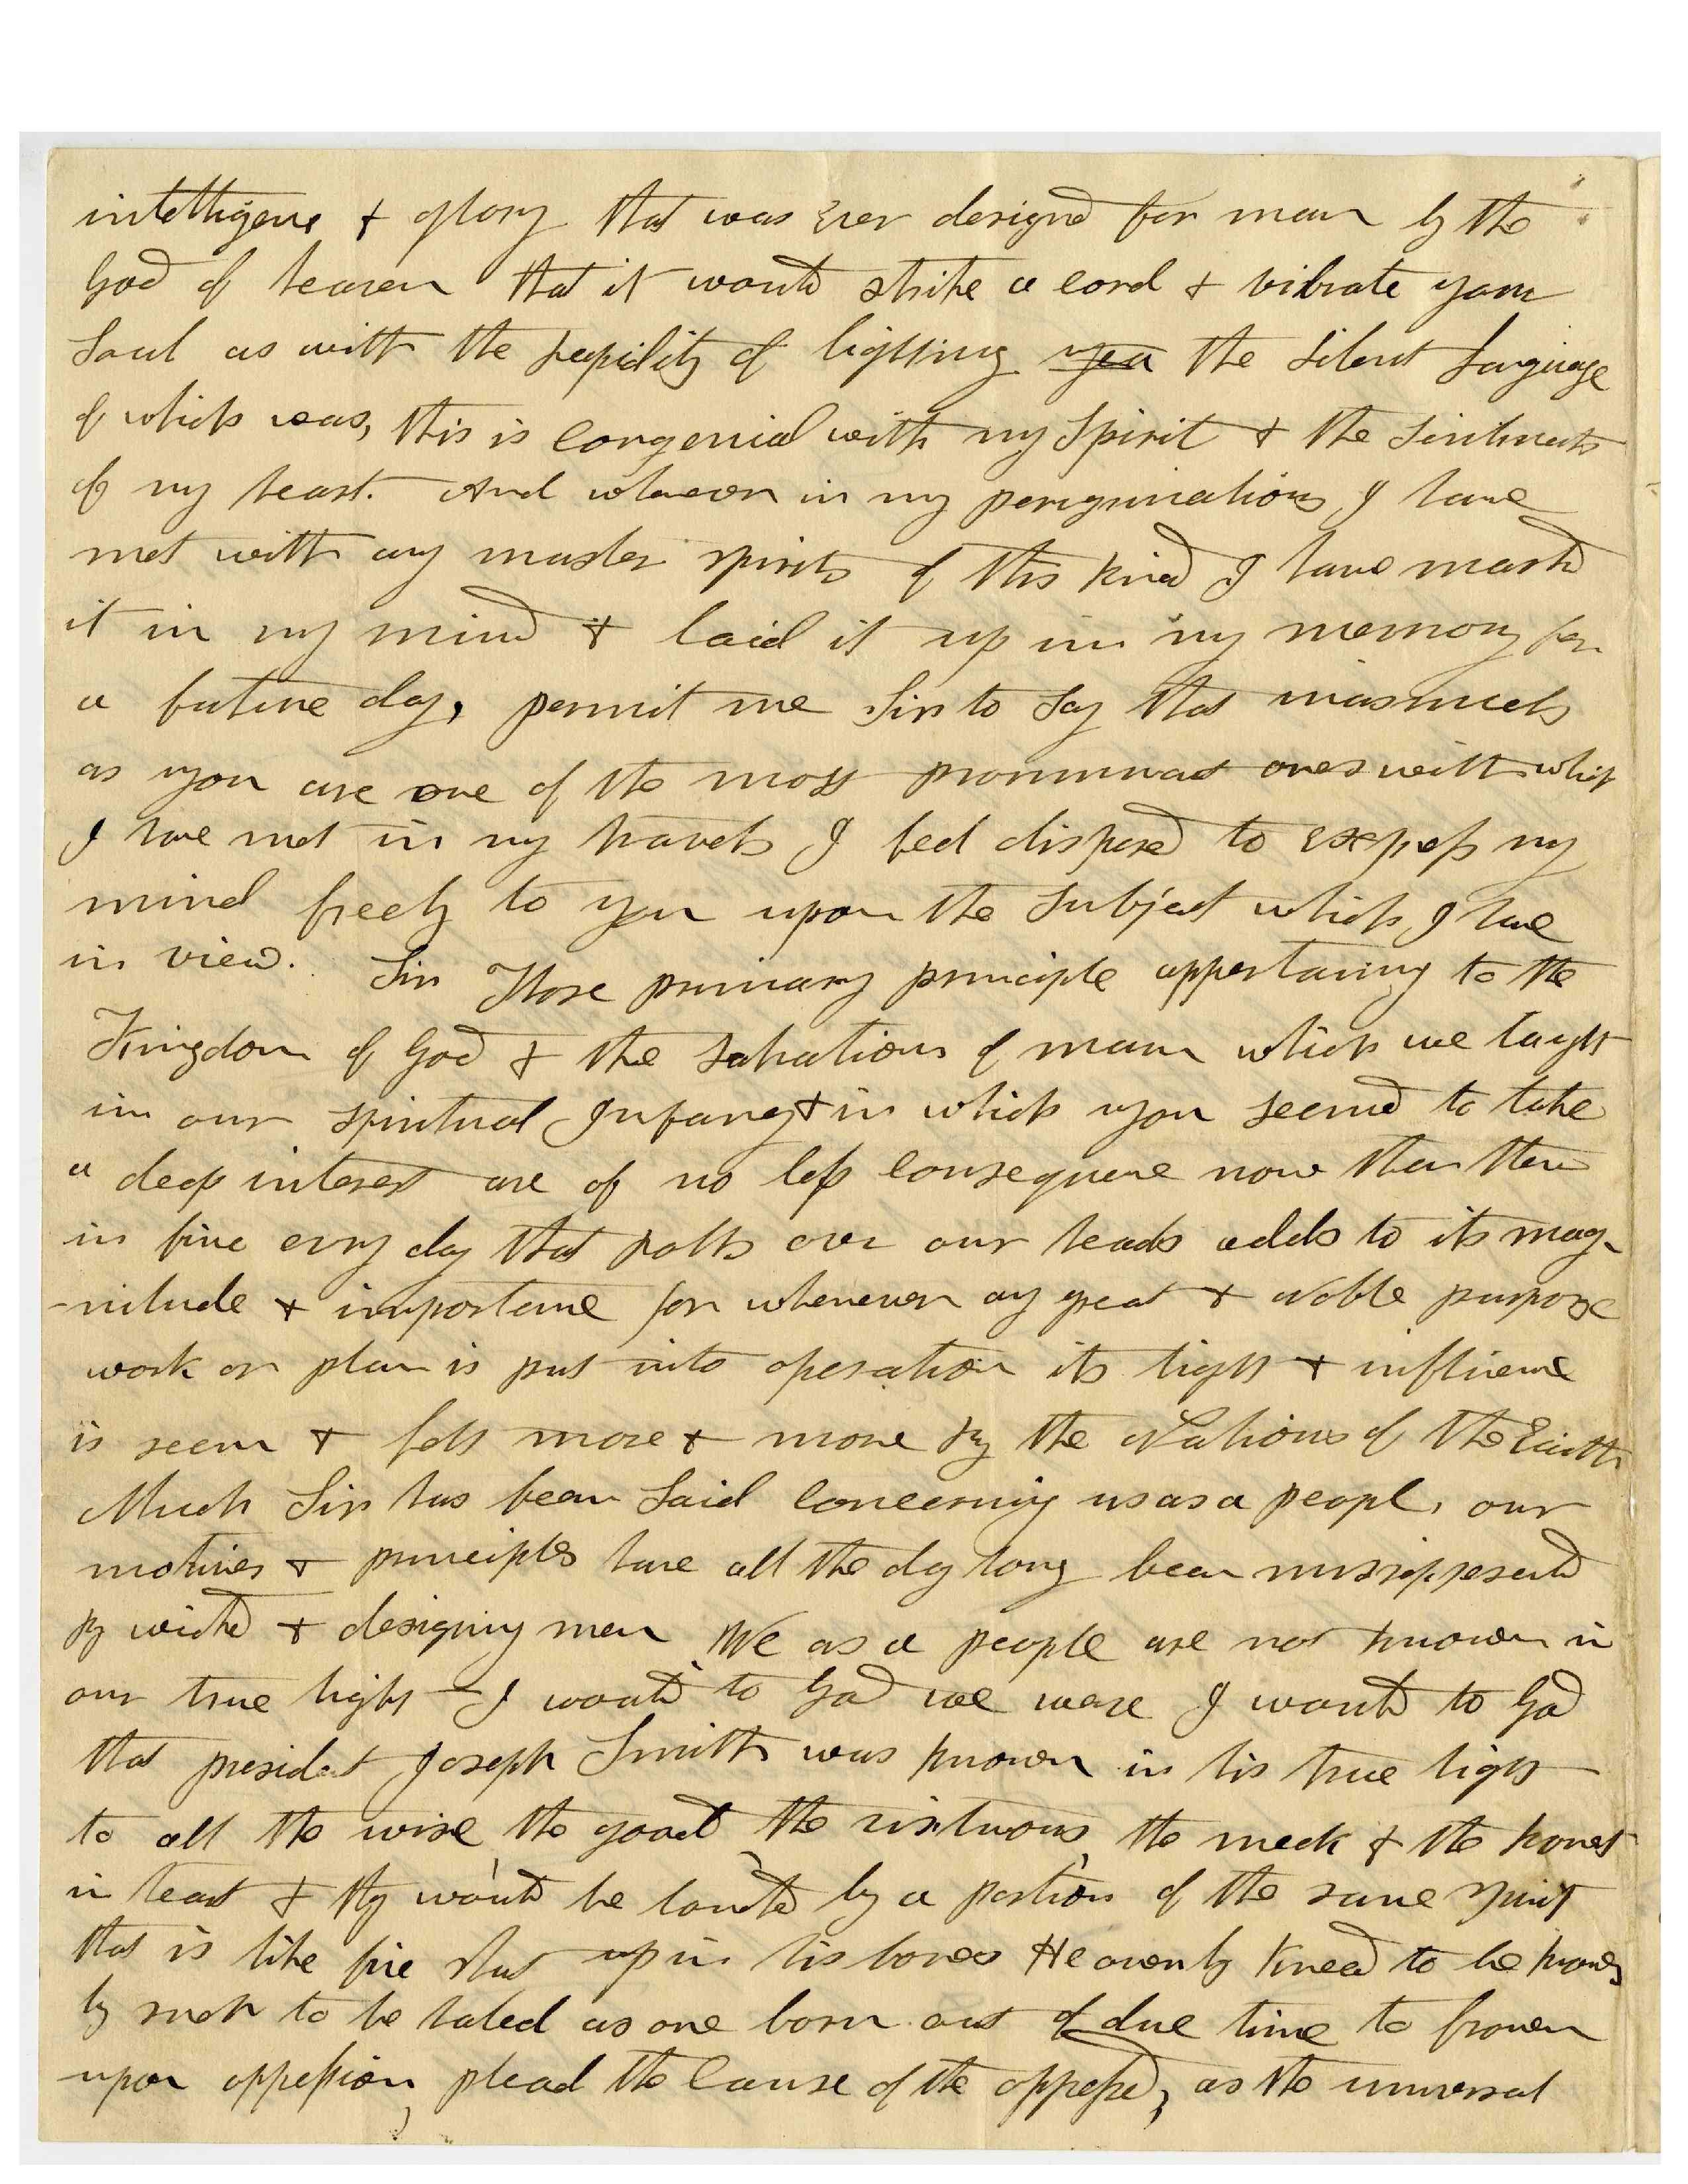 intelligence & glory that was Ever designd for man by the
God of heaven that it would strike a cord & vibrate your
Soul as with the rapidity of lightning yea the Silent Language
of which was, this is Congenial with my Spirit & the Sentiments
of my heart. And whenever in my peregrinations I have
met with any master spirits of this kind I have markd
it in my mind & laid it up in my memory for
a future day, permit me Sir to Say that inasmuch
as you are one of the most prominant ones with which
I have met in my travels I feel disposed to express my
mind freely to you upon the Subject which I have
in view. Sir Those primary principle appertaining to the
Kingdom of God & the Salvation of man which we taught
in our spiritual Infancy & in which you seemd to take
a deep interest are of no less Consequence now than then
in fine evry day that rolls over our heads adds to its mag-
-nitude & importance for whenever any great & Noble purpose
work or plan is put into operation its light & influence
is seen & felt more & more by the Nations of the Earth
Much Sir has been Said Concerning us as a people, our
motives & principles have all the day long been missrepresented
by wicked & designing men We as a people are not known in
our true light – I would to God we were I would to God
that president Joseph Smith was known in his true light
to all the wise, the good, the virtuous, the meek & the honest
in heart & they would be haunted by a portion of the same spirit
that is like fire shut up in his bones Heavenly Knead to be known
by men to be hated as one born out of due time to frown
upon oppression, plead the Cause of the oppressed, as the universal